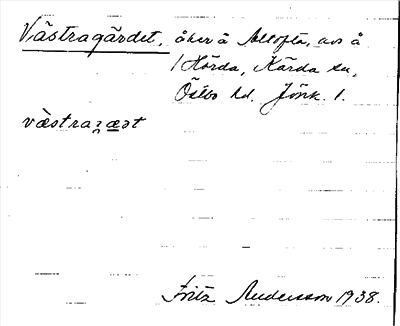 Västragärdet, åker å Allofta, avs å
1 Hörda, Kärda sn,
Östbo hd. Jönk. l.
västraʒæ̲ət
Fritz Andersson 1938.